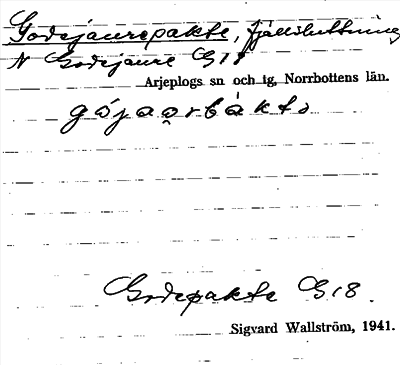 Godejaurepakte, fjällsluttning
N Godejaure G18
Arjeplogs sn och tg, Norrbottens län.
Godepakte G18.
Sigvard Wallström, 1941.